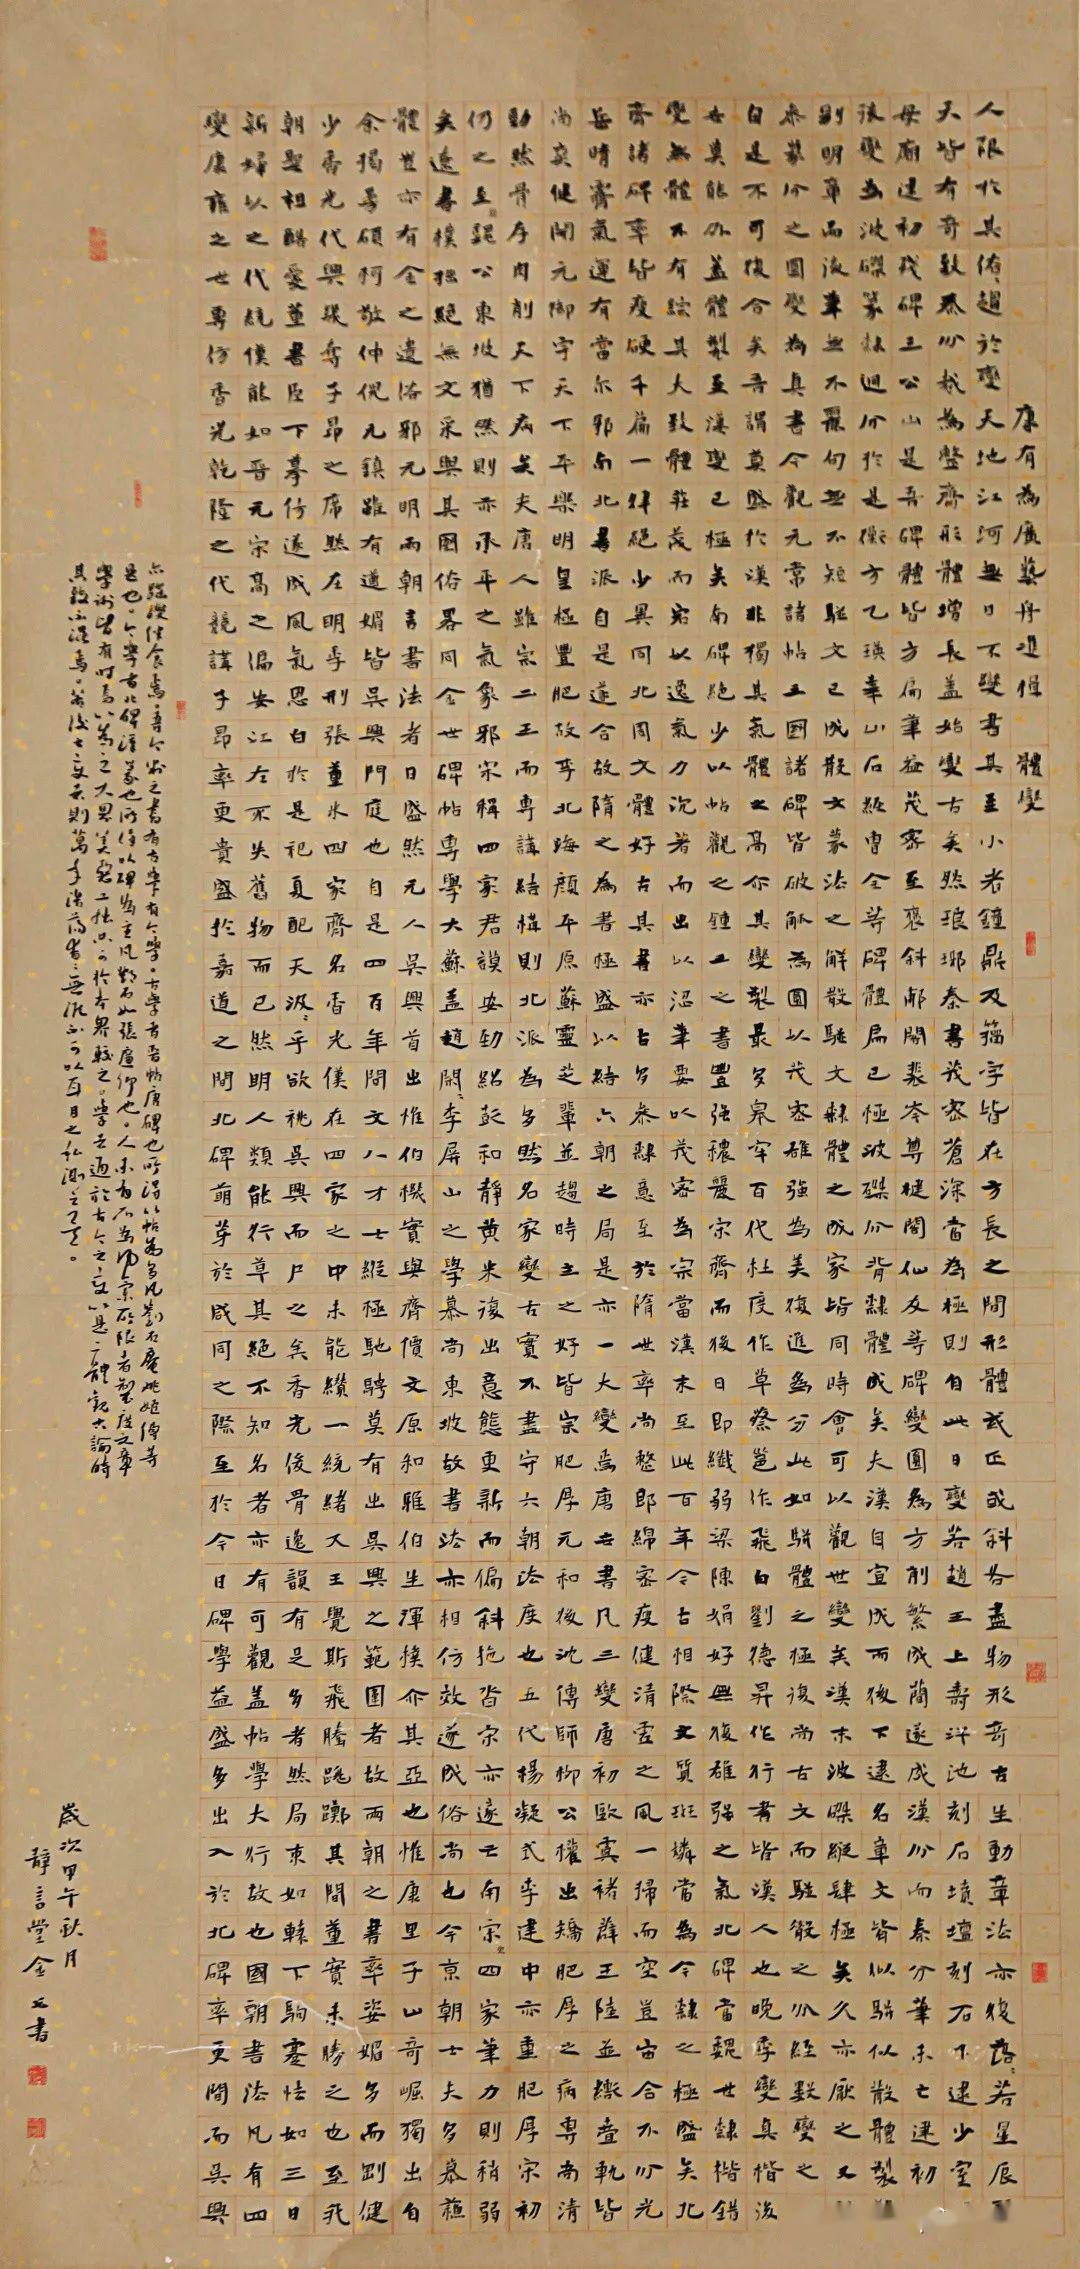 康有為廣藝舟雙楫 體變
人限於其俗趨於變天地江河無日不變書其至小者鐘鼎及籀字皆在方長之間形體或正或斜各盡物形奇古生動章法亦復落落若星辰
天皆有奇致秦分裁為整齊形體增長蓋始變古矣然琅琊秦書茂密蒼深當為極則自此日變若趙王上壽泮池刻石墳壇刻石下逮少室
母廟建初殘碑三公山是吾碑體皆方扁筆益茂密至褒斜鄐開裴岑尊楗閣仙友等碑變圓為方削繁成簡遂成漢分而秦分筆未亡逮初
張變為波磔篆隸迥分於是衡方乙瑛華山石經曹全等碑體扁已極波磔分背隸體成矣夫漢自宣成而後下逮名章文皆似駢似散體製
別明章而後筆無不麗句無不短駢文已成散文篆法之解散駢文隸體之成家皆同時會可以觀世變矣漢末波磔縱肆極矣久亦厭之又
參篆分之圓變為真書今觀元常諸帖三國諸碑皆破觚為圓以茂密雄強為美復進為分此如駢體之極復尚古文而駢散之分經數變之
自是不可復合矣吾謂莫盛於漢非獨其氣體之高亦其變製最多皋牢百代杜度作草蔡邕作飛白劉德昇作行書皆漢人也晚季變真楷後
世莫能外蓋體製至漢變已極矣南碑絕少以帖觀之鍾王之書豐強穠麗宋齊而後日即纖弱梁陳娟好無復雄強之氣北碑當魏世隸楷錯
變無體不有綜其大致體莊茂而宕以逸氣力沉著而出以沼筆要以茂密為宗當漢末至此百年今古相際文質斑斕當為今隸之極盛矣北
齊諸碑率皆瘦硬千篇一律絕少異同北周文體好古其書亦古多參隸意至於隋世率尚整郎綿密瘦健清虛之風一掃而空豈宙合不分光
岳晴齋氣運有當尔邪南北書派自是遂合故隋之為書極盛以結六朝之局是亦一大變焉唐世書凡三變唐初歐虞褚薛王陸並轡疊軌皆
尚爽健開元御宇天下平樂明皇極豐肥故李北海顏平原蘇靈芝輩並趨時主之好皆宗肥厚元和後沈傳師柳公權出矯肥厚之病專尚清
動然骨存肉削天下病矣夫唐人雖宗二王而專講結構則北派為多然名家變古實不盡守六朝法度也五代楊凝式李建中亦重肥厚宋初
仍之至魏公東坡猶然則亦承平之氣象邪宋稱四家君謨安劭紹彭和靜黃米復出意態更新而偏斜拖沓宋亦遂云南宋四家筆力則稍弱
矣遼書樸拙絕無文采與其國俗畧同金世碑帖專學大蘇蓋趙閑閑李屏山之學慕尚東坡故書法亦相仿效遂成俗尚也今京朝士夫多慕蘇
體豈亦有金之遺俗邪元明兩朝言書法者日盛然元人吳興首出惟伯機實與齊價文原和雅伯生渾樸亦其亞也惟康里子山奇崛獨出自
余揭多碩柯敬仲倪元鎮雖有遒媚皆吳興門庭也自是四百年間文八才士縱極馳騁莫有出吳興之範圍者故兩朝之書率姿媚多而剛健
少香光代興幾奪子昂之席然在明季邢張董米四家齊名香光僅在四家之中未能纘一統緒又王覺斯飛騰跳躑其間董實未勝之也至我
朝聖祖酷愛董書臣下摹仿遂成風氣思白於是祀夏配天汲汲乎欲祧吳興而尸之矣香光俊骨逸韻有足多者然局束如轅下駒蹇怯如三日
新婦以之代統僕能如晉元宋高之偏安江左不失舊物而已然明人類能行草其絕不知名者亦有可觀蓋帖學大行故也國朝書法凡有四
變康雍之世專仿香光乾隆之代競講子昂率更貴盛於嘉道之間北碑萌芽於咸同之際至於今日碑學益盛多出入於北碑率更間而吳興
亦蹀躞伴食焉。吾今判之書有古學有今學。古學者晉帖唐碑也所得以帖為多凡劉石庵姚姬傳等
是也。今學者北碑漢篆也所得以碑為主凡鄧石如張廉卿也。人未有不為風氣所限者制度文章
學術皆有時焉以為之大界美惡工拙只可於本界較之。學者通於古今之變以是二體觀六論時
其致不混焉。若後之變天則萬年無涯不可以耳目之私測之了矣。
歲次甲午秋月
靜言堂金文書